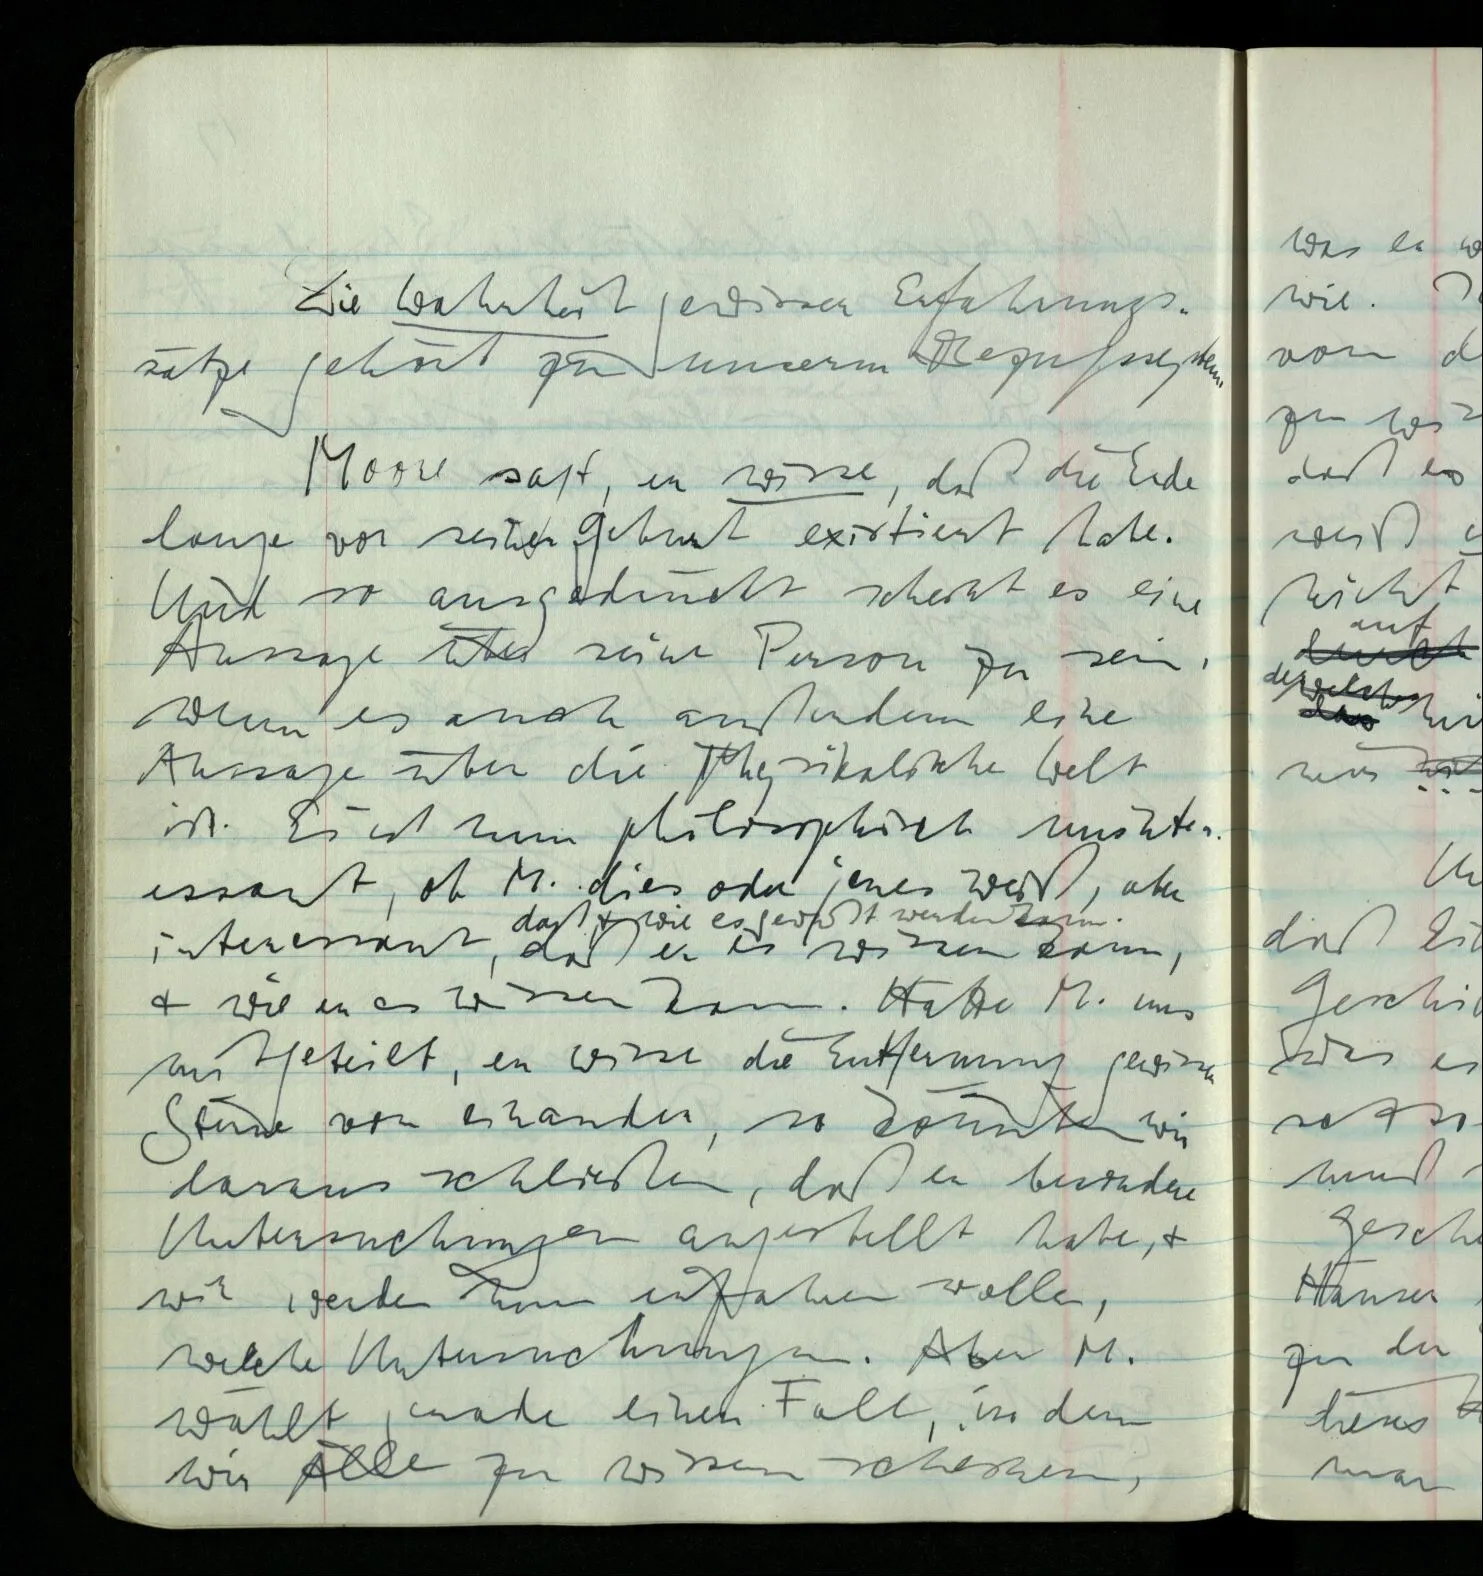 Die Wahrheit gewisser Erfahrungs-
sätze gehört zu unserm Bezugssystem.
Moore sagt, er wisse, daß die Erde
lange vor seiner Geburt existiert habe.
Und so ausgedrückt scheint es eine
Aussage über seine Person zu sein,
wenn es auch außerdem eine
Aussage über die Physikalische Welt
ist. Es ist nun philosophisch uninter-
essant, ob M. dies oder jenes weiß, aber
daß & wie es gewußt werden kann.
interessant, daß er es wissen kann,
& wie er es wissen kann. Hätte M. uns
mitgeteilt, er wisse die Entfernung gewisser
Sterne von einander, so könnten wir
daraus schließen, daß er besondere
Untersuchungen angestellt habe, &
wir werden nun erfahren wollen,
welche Untersuchungen. Aber M.
wählt gerade einen Fall, in dem
wir Alle zu wissen scheinen,
was er
wie.
von
zu
daß es
weiß
nicht
auf
zu der
man